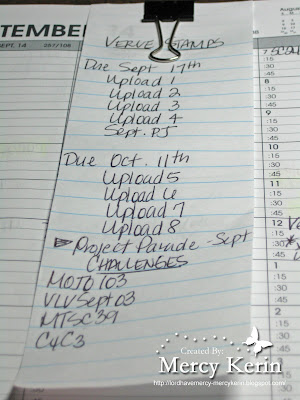 VERVE STAMPS
Due Sept 17th
Upload 1
Upload 2
Upload 3
Upload 4
Sept. PJ
Due Oct. 11th
Upload 5
Upload 6
Upload 7
Upload 8
Project Parade - Sept
CHALLENGES
MOJO 103
VLVSept03
MTSC39
C4C3
TEMBER
SEPT. 14
257/108
:15
:30
:45
8
:15
:30
:45
9
:15
:30
:45
10
:15
:30
:45
11
:15
:30
:45
12
:15
:30
:45
1
:15
:30
:45
2
:15
:30
:45
Created By:
Mercy Kerin
http://lordhavemercy-mercykerin.blogspot.com